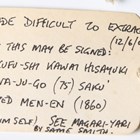 ADE DIFFICULT TO EXTRAC
(12/6/
THIS MAY BE SIGNED:
FU-SHI KAWAI HISAYUKI
VA-JU-GO (75) SAKU
TED MEN-EN (1860)
IMSELF) SEE MAGARI-YARI
BY SAME SMITH